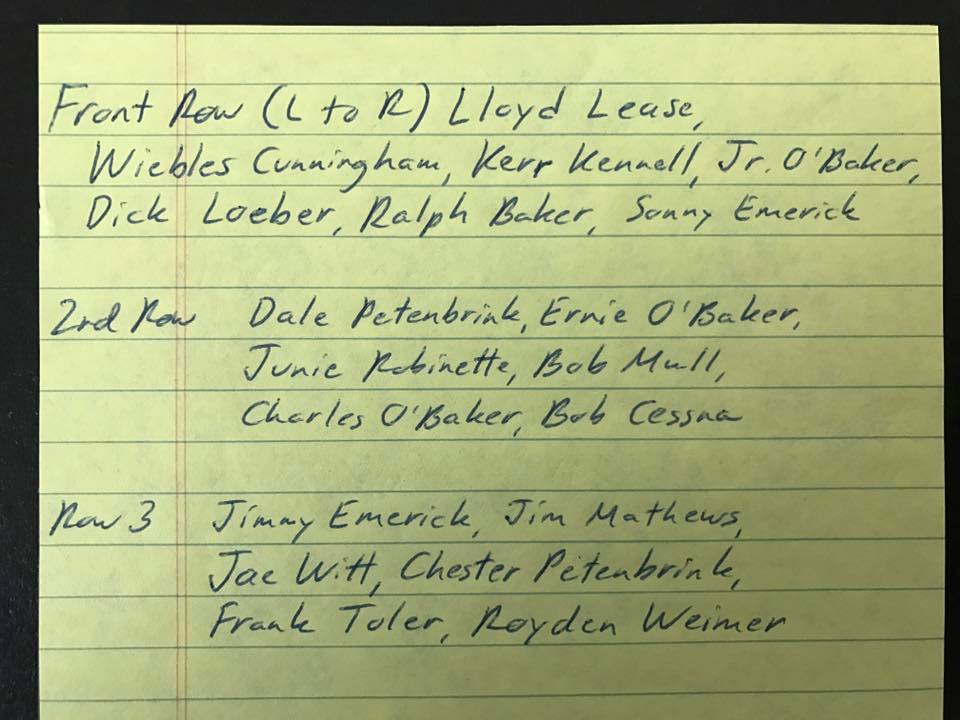 Front Row (L to R) Lloyd Lease,
Wiebles Cunningham, Kerr Kennell, Jr. O'Baker,
Dick Loeber, Ralph Baker, Sonny Emerick
2nd Row Dale Petenbrink, Ernie O'Baker,
Junie Robinette, Bob Mull,
Charles O'Baker, Bob Cessna
Row 3 Jimmy Emerick, Jim Mathews,
Jae Witt, Chester Petenbrink,
Frank Toler, Royden Weimer